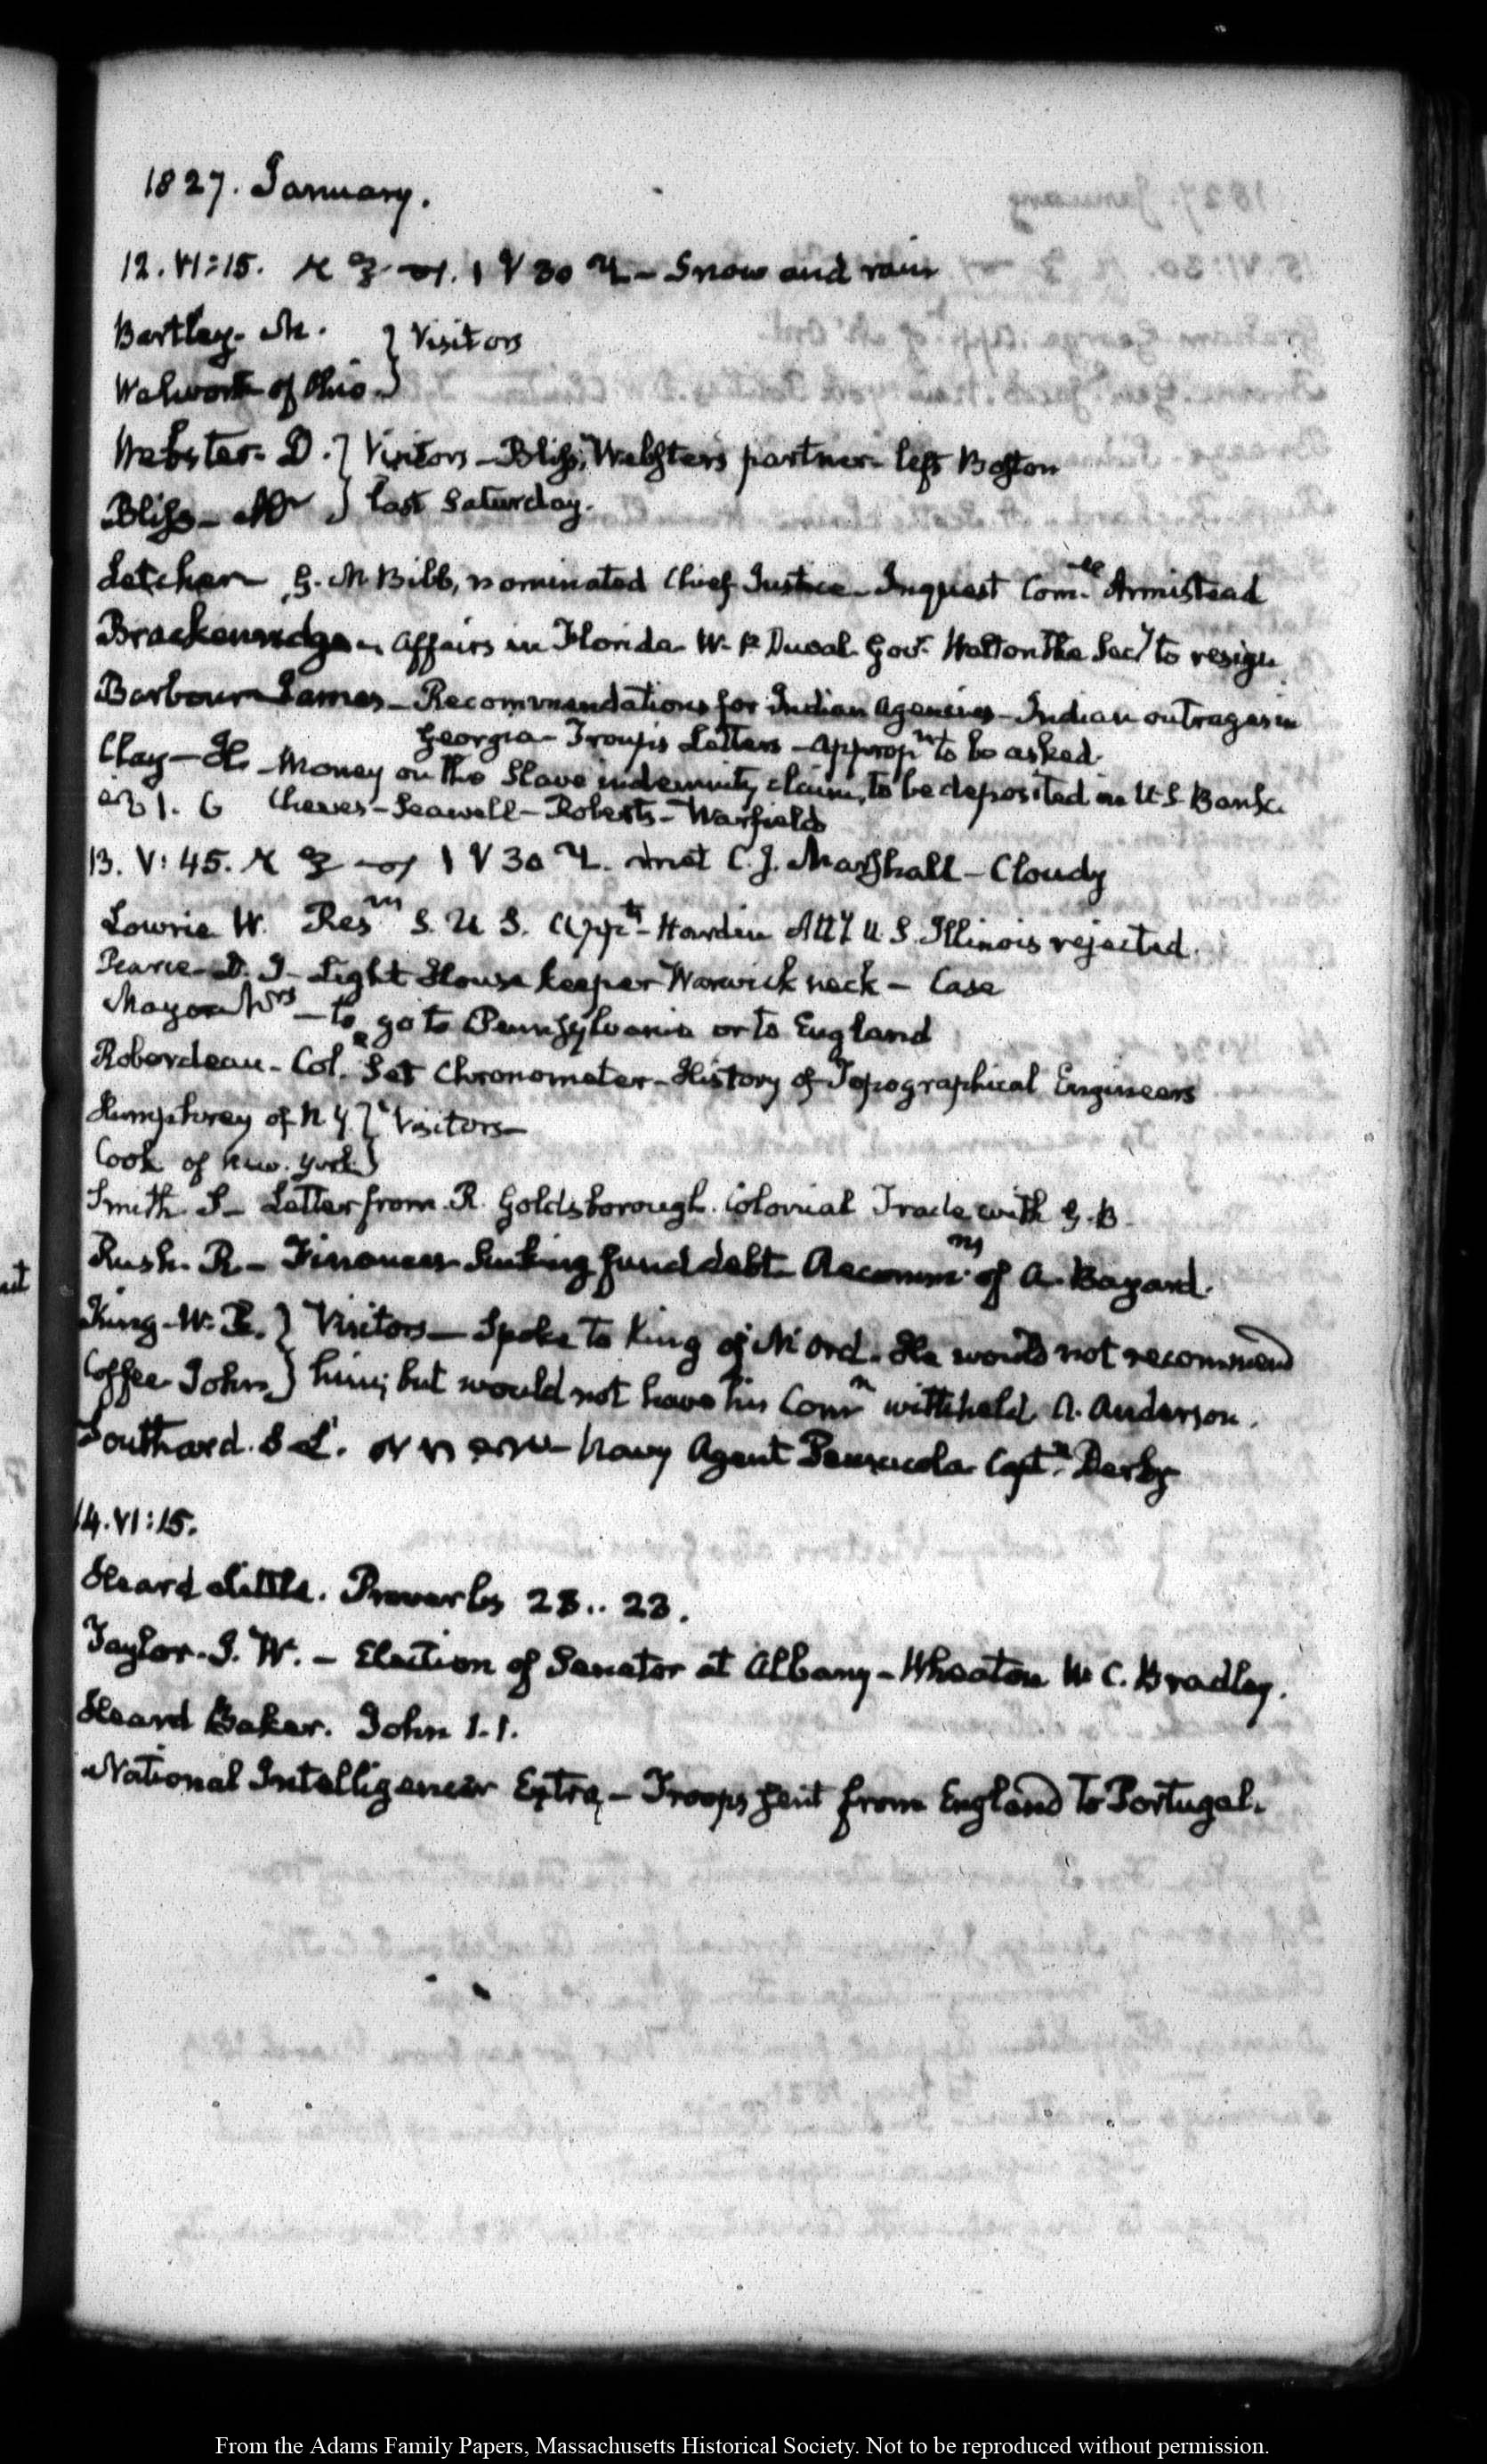 1827. January.
12. VI:15. Snow and rain
Bartley. M. } Visitors
Walworth of Ohio. }
Webster. D. } Visitors — Bliss, Websters partner left Boston
Bliss — Mr } last Saturday.
Letcher G. M Bibb, nominated Chief Justice — Inquest Com.ee Armistead
Brackenridge — Affairs in Florida W. P. Duval Govr. Walton the Secy to resign
Barbour James — Recommendations for Indian Agencies — Indian outrages in
Georgia — Troup's Letters — Appropns to be asked.
Clay — H. — Money on the Slave indemnity claims, to be deposited in U.S. Bank.
Cheves — Seawell — Roberts — Warfield
13. V:45. 1 V 30 met C. J. Marshall — Cloudy
Lowrie W. Resns S. U S. Appts — Hardin Atty U.S. Illinois rejected.
Pearce — D. J — Light House keeper Warwick neck — Case
Mrs — to go to Pennsylvania or to England
Roberdeau — Col. Set Chronometer — History of Topographical Engineers
Humphrey of N Y. } Visitors —
Cook of New. York }
Smith S — Letter from R. Goldsborough. Colonial Trade with G. B.
Rush. R — Finances Sinking fund debt of A. Bayard.
King — W. R. } Visitors — Spoke to King of McOrd. He would not recommend
Coffee John } him; but would not have his Comn withheld. A. Anderson.
Southard. S L. Navy Agent Pensacola Captn Derby
14. VI:15.
Heard Little. Proverbs 23..23.
Taylor. J. W. — Election of Senator at Albany — Wheaton W C. Bradley.
Heard Baker. John 1.1.
National Intelligencer Extra — Troops sent from England to Portugal.
From the Adams Family Papers, Massachusetts Historical Society. Not to be reproduced without permission.